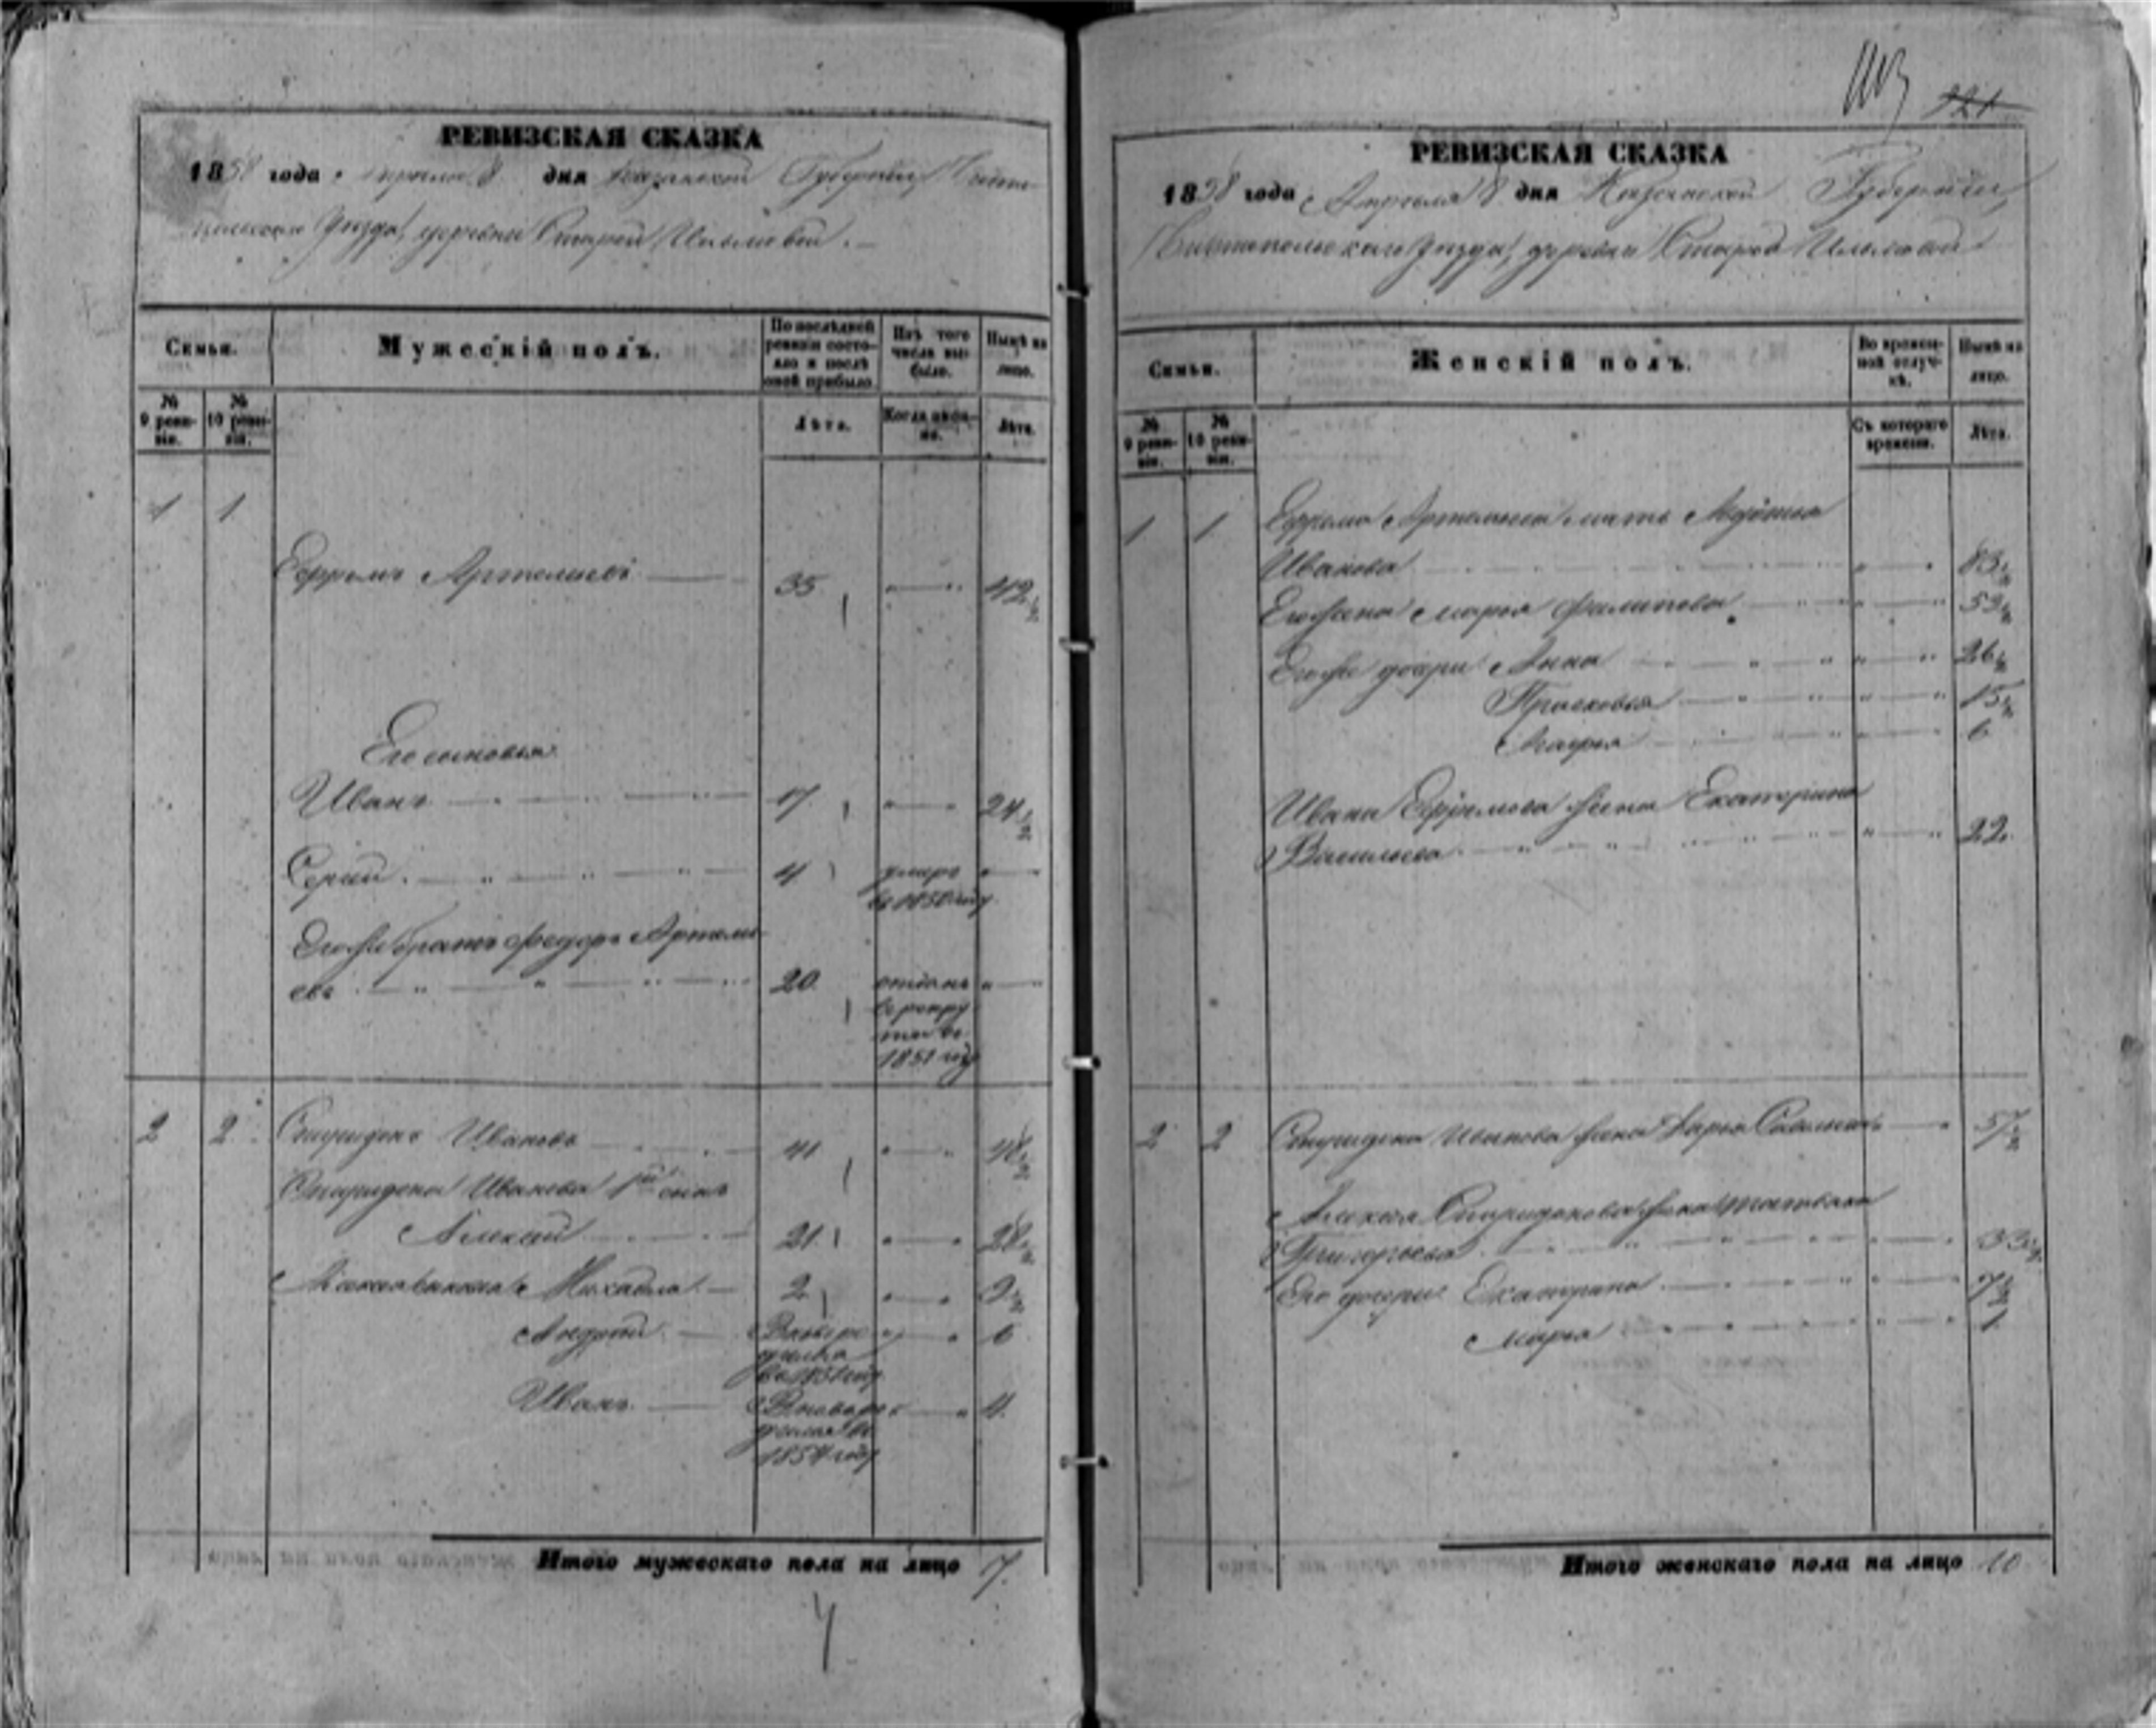 РЕВИЗСКАЯ СКАЗКА
1858 года Апреля 8 дня Казанской Губернии Чисто
польскаго Уезда, деревни Старой Ильмовой.
Семьи.
Мужескій полъ.
По последней ревизіи состояло и после оной прибыло.
Изъ того числа выбыло.
Ныне на лицо.
№ 9 ревизіи.
№ 10 ревизіи.
Лета.
Когда именно.
Лета.
1 1
Ефремъ Артемьевъ 35 42 1/2
Его сыновья
Иванъ 17 24 1/2
Сергей 4 умеръ
въ 1850 году
Его же братъ Федоръ Артемь
евъ 20 отданъ
въ рекру
ты въ
1851 году
2 2 Спиридонъ Ивановъ 41 48 1/2
Спиридона Иванова 1й сынъ
Алексей 21 28 1/2
Михайла 2 9 1/2
Андрей 6
въ 1851 году
Иванъ 4
1854 году
Итого мужескаго пола на лицо 7.
4
921
РЕВИЗСКАЯ СКАЗКА
1858 года Апреля 8 дня Казанской Губернии,
Чистопольскаго Уезда, деревни Старой Ильмовой
Семьи.
Женскій полъ.
Во временной отлучке.
Ныне на лицо.
№ 9 ревизіи.
№ 10 ревизіи.
Съ котораго времени.
Лета.
1 1 Ефрема Артемьева мать
Иванова 83 1/2
Его жена Марья Филипова 53 1/2
Его же дочери Анна 26 1/2
Прасковья 15 1/2
6
Ивана Ефремова жена Екатерина
Васильева 22
2 2 Спиридона Иванова жена Дарья 57 1/2
Алексея Спиридонова жена Татьяна
Григорьева 33 1/2
Его дочери Екатерина 7 1/2
Марья 1
Итого женскаго пола на лицо 10